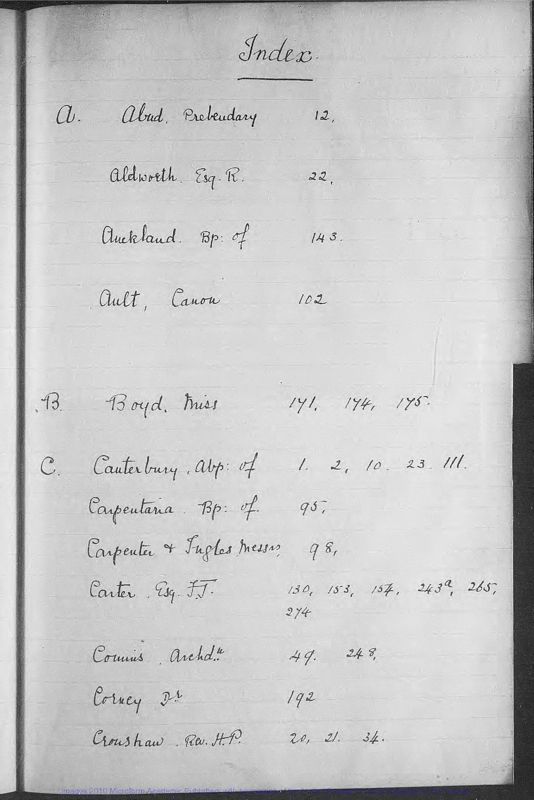 Index.
A. Abud, Prebendary 12,
Aldworth Esq. R. 22,
Auckland. Bp: of 143.
Ault, Canon 102
B. Boyd, Miss 171, 174, 175.
C. Canterbury, Abp: of 1. 2, 10. 23. 111.
Carpentaria. Bp: of. 95,
Carpenter & Ingles Messrs, 98,
Carter, Esq. F.J. 130, 153, 154, 243a, 265,
274
Comins, Archdn 49. 248,
Corney Dr 192
Cronshaw. Rev. H.P. 20, 21. 34.